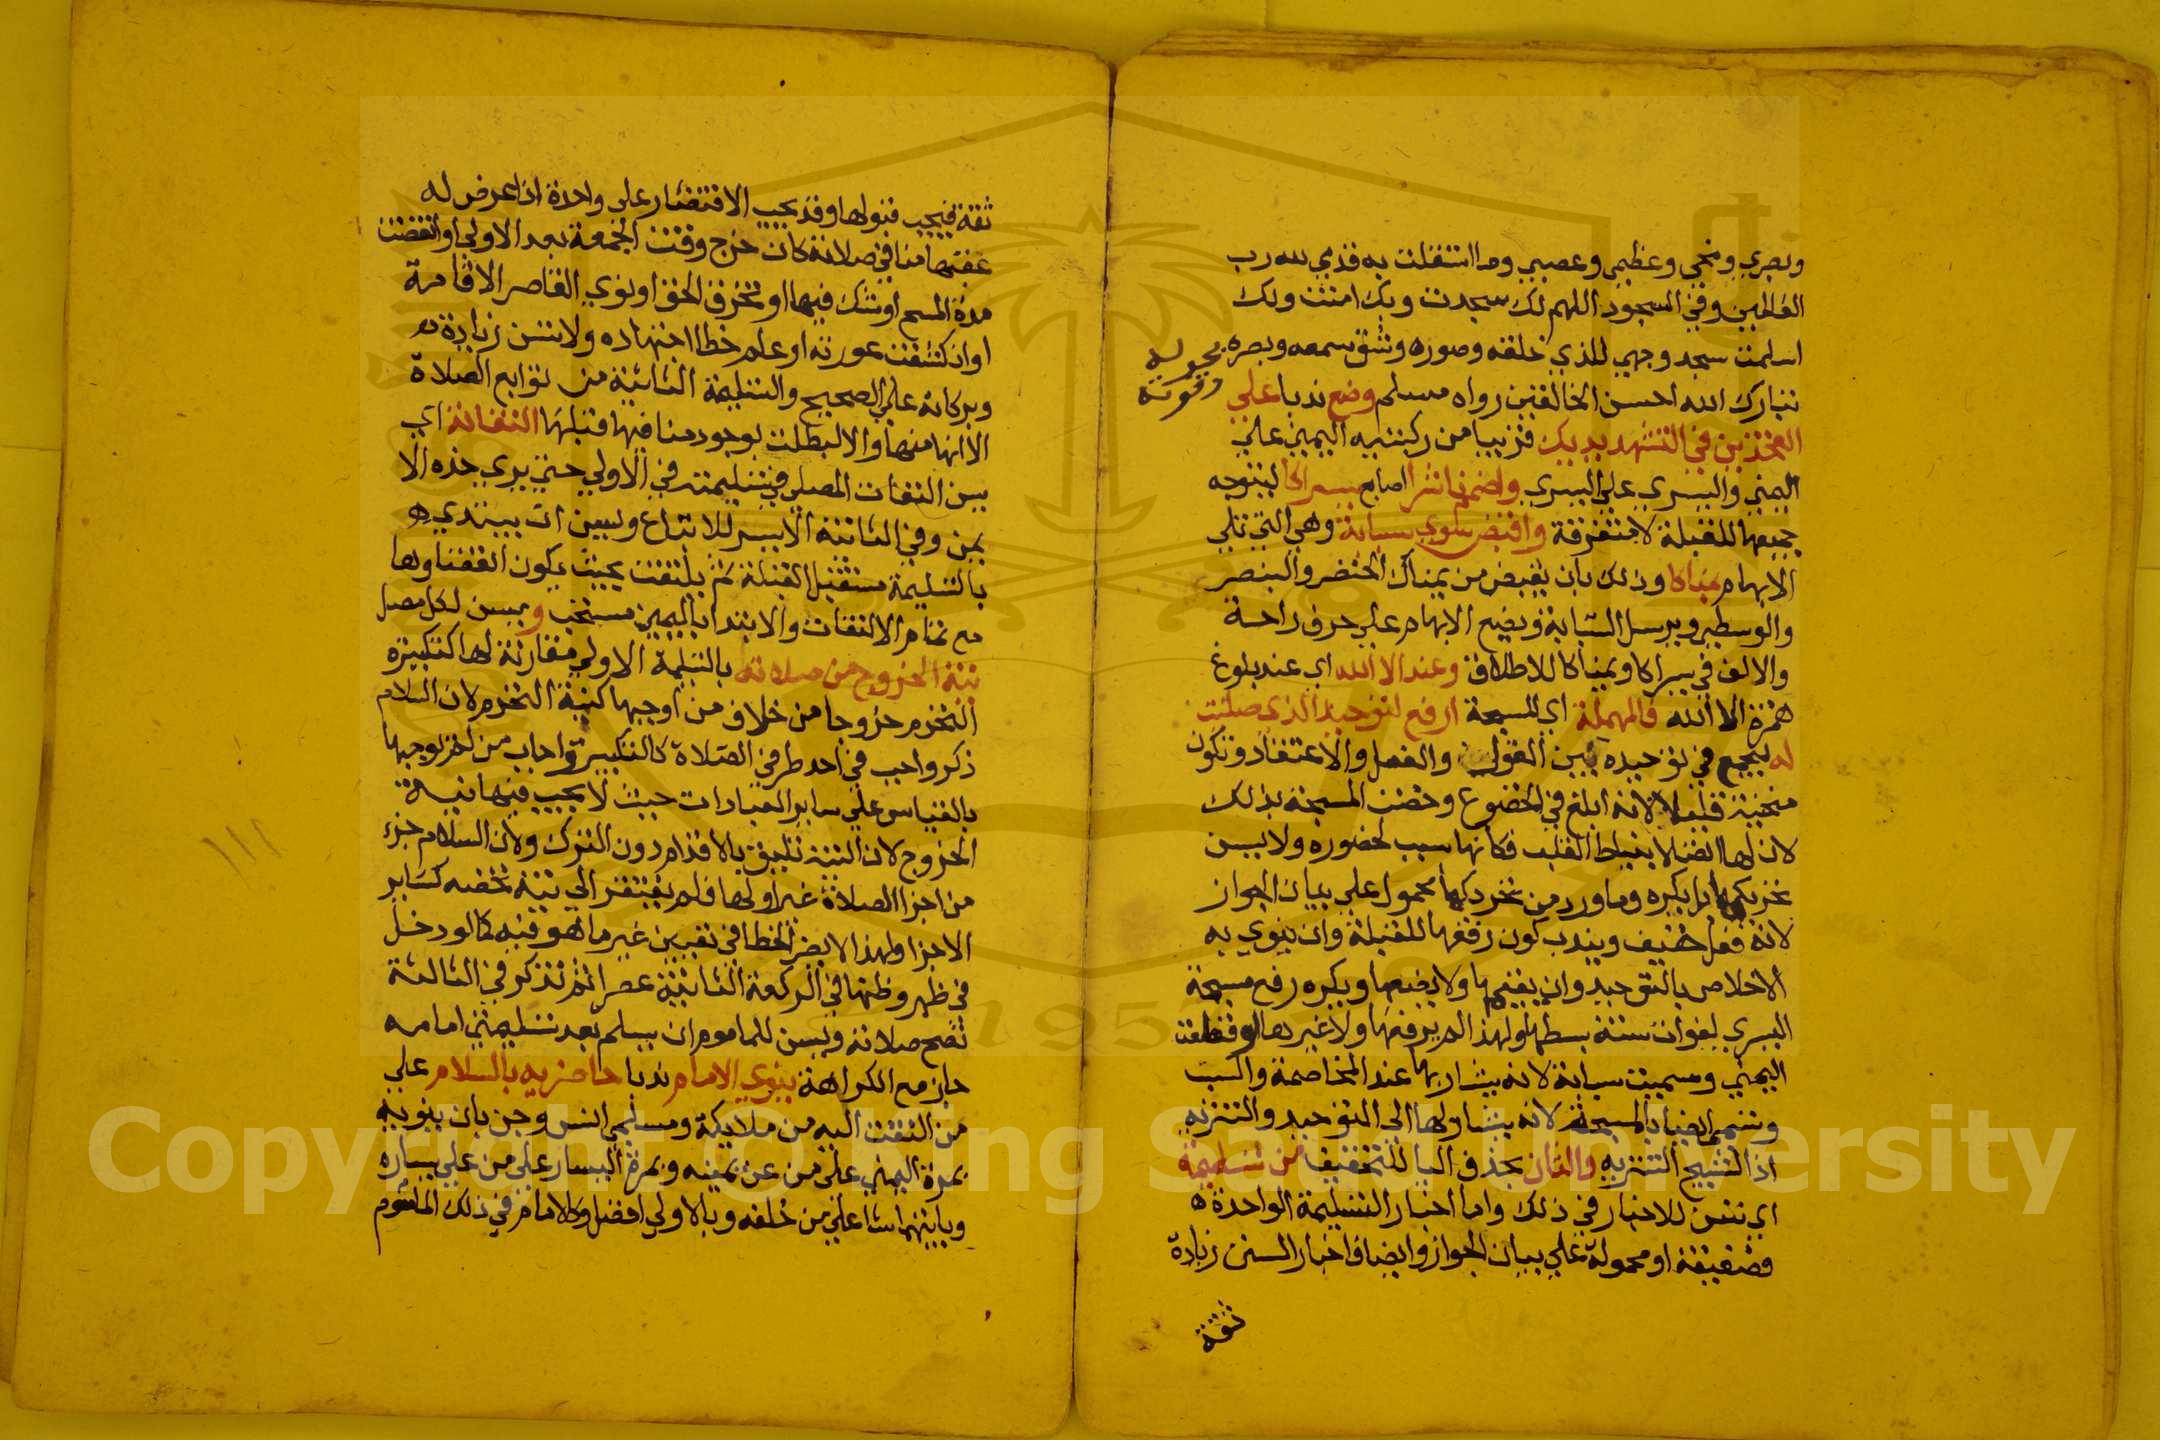 وبصري ومخي وعظمي وعصبي وما استقلت به قدمي لله رب
العالمين وفي السجود اللهم لك سجدت وبك امنت ولك
اسلمت سجد وجهي للذي خلقه وصوره وشق سمعه وبصره بحوله
وقوته
تبارك الله احسن الخالقين رواه مسلم وضع ندبا على
الفخذين في التشهد يديك قريبا من ركبتيه اليمني علي
اليمني واليسري علي اليسري واضمن ناشرا اصابع يسراكا لتتوجه
جميعها للقبلة لا متفرقة واقبض سوي سبابة وهي التي تلي
الابهام يمناكا وذلك بان يقبض من يمناك الخنصر والبنصر
والوسطي ويرسل السبابة ويضع الابهام علي حرف راحة
والالف في يسراكا ويمناكا للاطلاق وعند الا الله اي عند بلوغ
همزة الا الله فالمهملة اي المسبحة ارفع لتوحيد الذي صليت
له ليجمع في توحيده بين القول والفعل والاعتقاد وتكون
منحنية قليلا لانه ابلغ في الخضوع وخصت المسبحة بذلك
لان لها اتصالا بنياط القلب فكانها سبب لحضوره ولا يسن
تحريكها بل يكره وما ورد من تحريكها محمول علي بيان الجواز
لانه فعل خفيف ويندب كون رفعها للقبلة وان ينوي به
الاخلاص بالتوحيد وان يقيمها ولا يضعها ويكره رفع مسبحة
اليسري لفوات سنة بسطها ولهذا لم يرفعها ولا غيرها لو قطعت
اليمني وسميت سبابة لانه يشار بها عند المخاصمة والسب
وتسمى ايضا بالمسبحة لانه يشار بها الى التوحيد والتنزيه
اذ التسبيح التنزيه والثان بحذف اليا للتخفيف من تسليمة
اي تسن للاخبار في ذلك واما اخبار التسليمة الواحدة
فضعيفة او محمولة علي بيان الجواز وايضا فاخبار السنن زيادة
ثقة
ثقة فيجب قبولها وقد يجب الاقتصار علي واحدة اذا عرض له
عقبها مناف صلاته كان خرج وقت الجمعة بعد الاولي او انقضت
مدة المسح او شك فيها او تخرق الخف او نوي القاصر الاقامة
او انكشفت عورته او علم خطا اجتهاده ولا تسن زيادة
وبركاته علي الصحيح والتسليمة الثانية من توابع الصلاة
لا انها منها والا لبطلت بوجود مناف فيها قبلها التفاتة اي
يسن التفات المصلي في تسليمته في الاولي حتي يري خده الا
يمن وفي الثانية الايسر للاتباع ويسن ان يبتدي
بالتسليمة مستقبل القبلة ثم يلتفت بحيث يكون انقضاوها
مع تمام الالتفات والابتدا باليمين مستحب ويسن لكل مصل
نية الخروج من صلاته بالتسليمة الاولي مقارنة لها كتكبيرة
التحرم خروجا من خلاف من اوجبها كنية التحرم لان السلام
ذكر واجب في احد طرفي الصلاة كالتكبيرة واجاب من لم يوجبها
بالقياس علي ساير العبادات حيث لا يجب فيها نية
الخروج لان النية تليق بالاقدام دون الترك ولان السلام جزء
من اجزا الصلاة غير اولها فلم يفتقر الي نية تخصه كساير
الاجزا ولهذا لا يضر الخطا في تعيين غير ما هو فيه كما لو دخل
في ظهر وظنها في الركعة الثانية عصرا ثم تذكر في الثالثة
تصح صلاته ويسن للماموم ان يسلم بعد تسليمتي امامه
جاز مع الكراهة ينوي الامام ندبا حاضريه بالسلام علي
من التفت اليه من ملايكة ومسلمي انس وجن بان ينويه
بمرة اليمني علي من عن يمينه وبمرة اليسار علي من علي يساره
وبايتهما شا علي من خلفه وبالاولي افضل وكالامام في ذلك الماموم
Copyright © King Saud University
1957